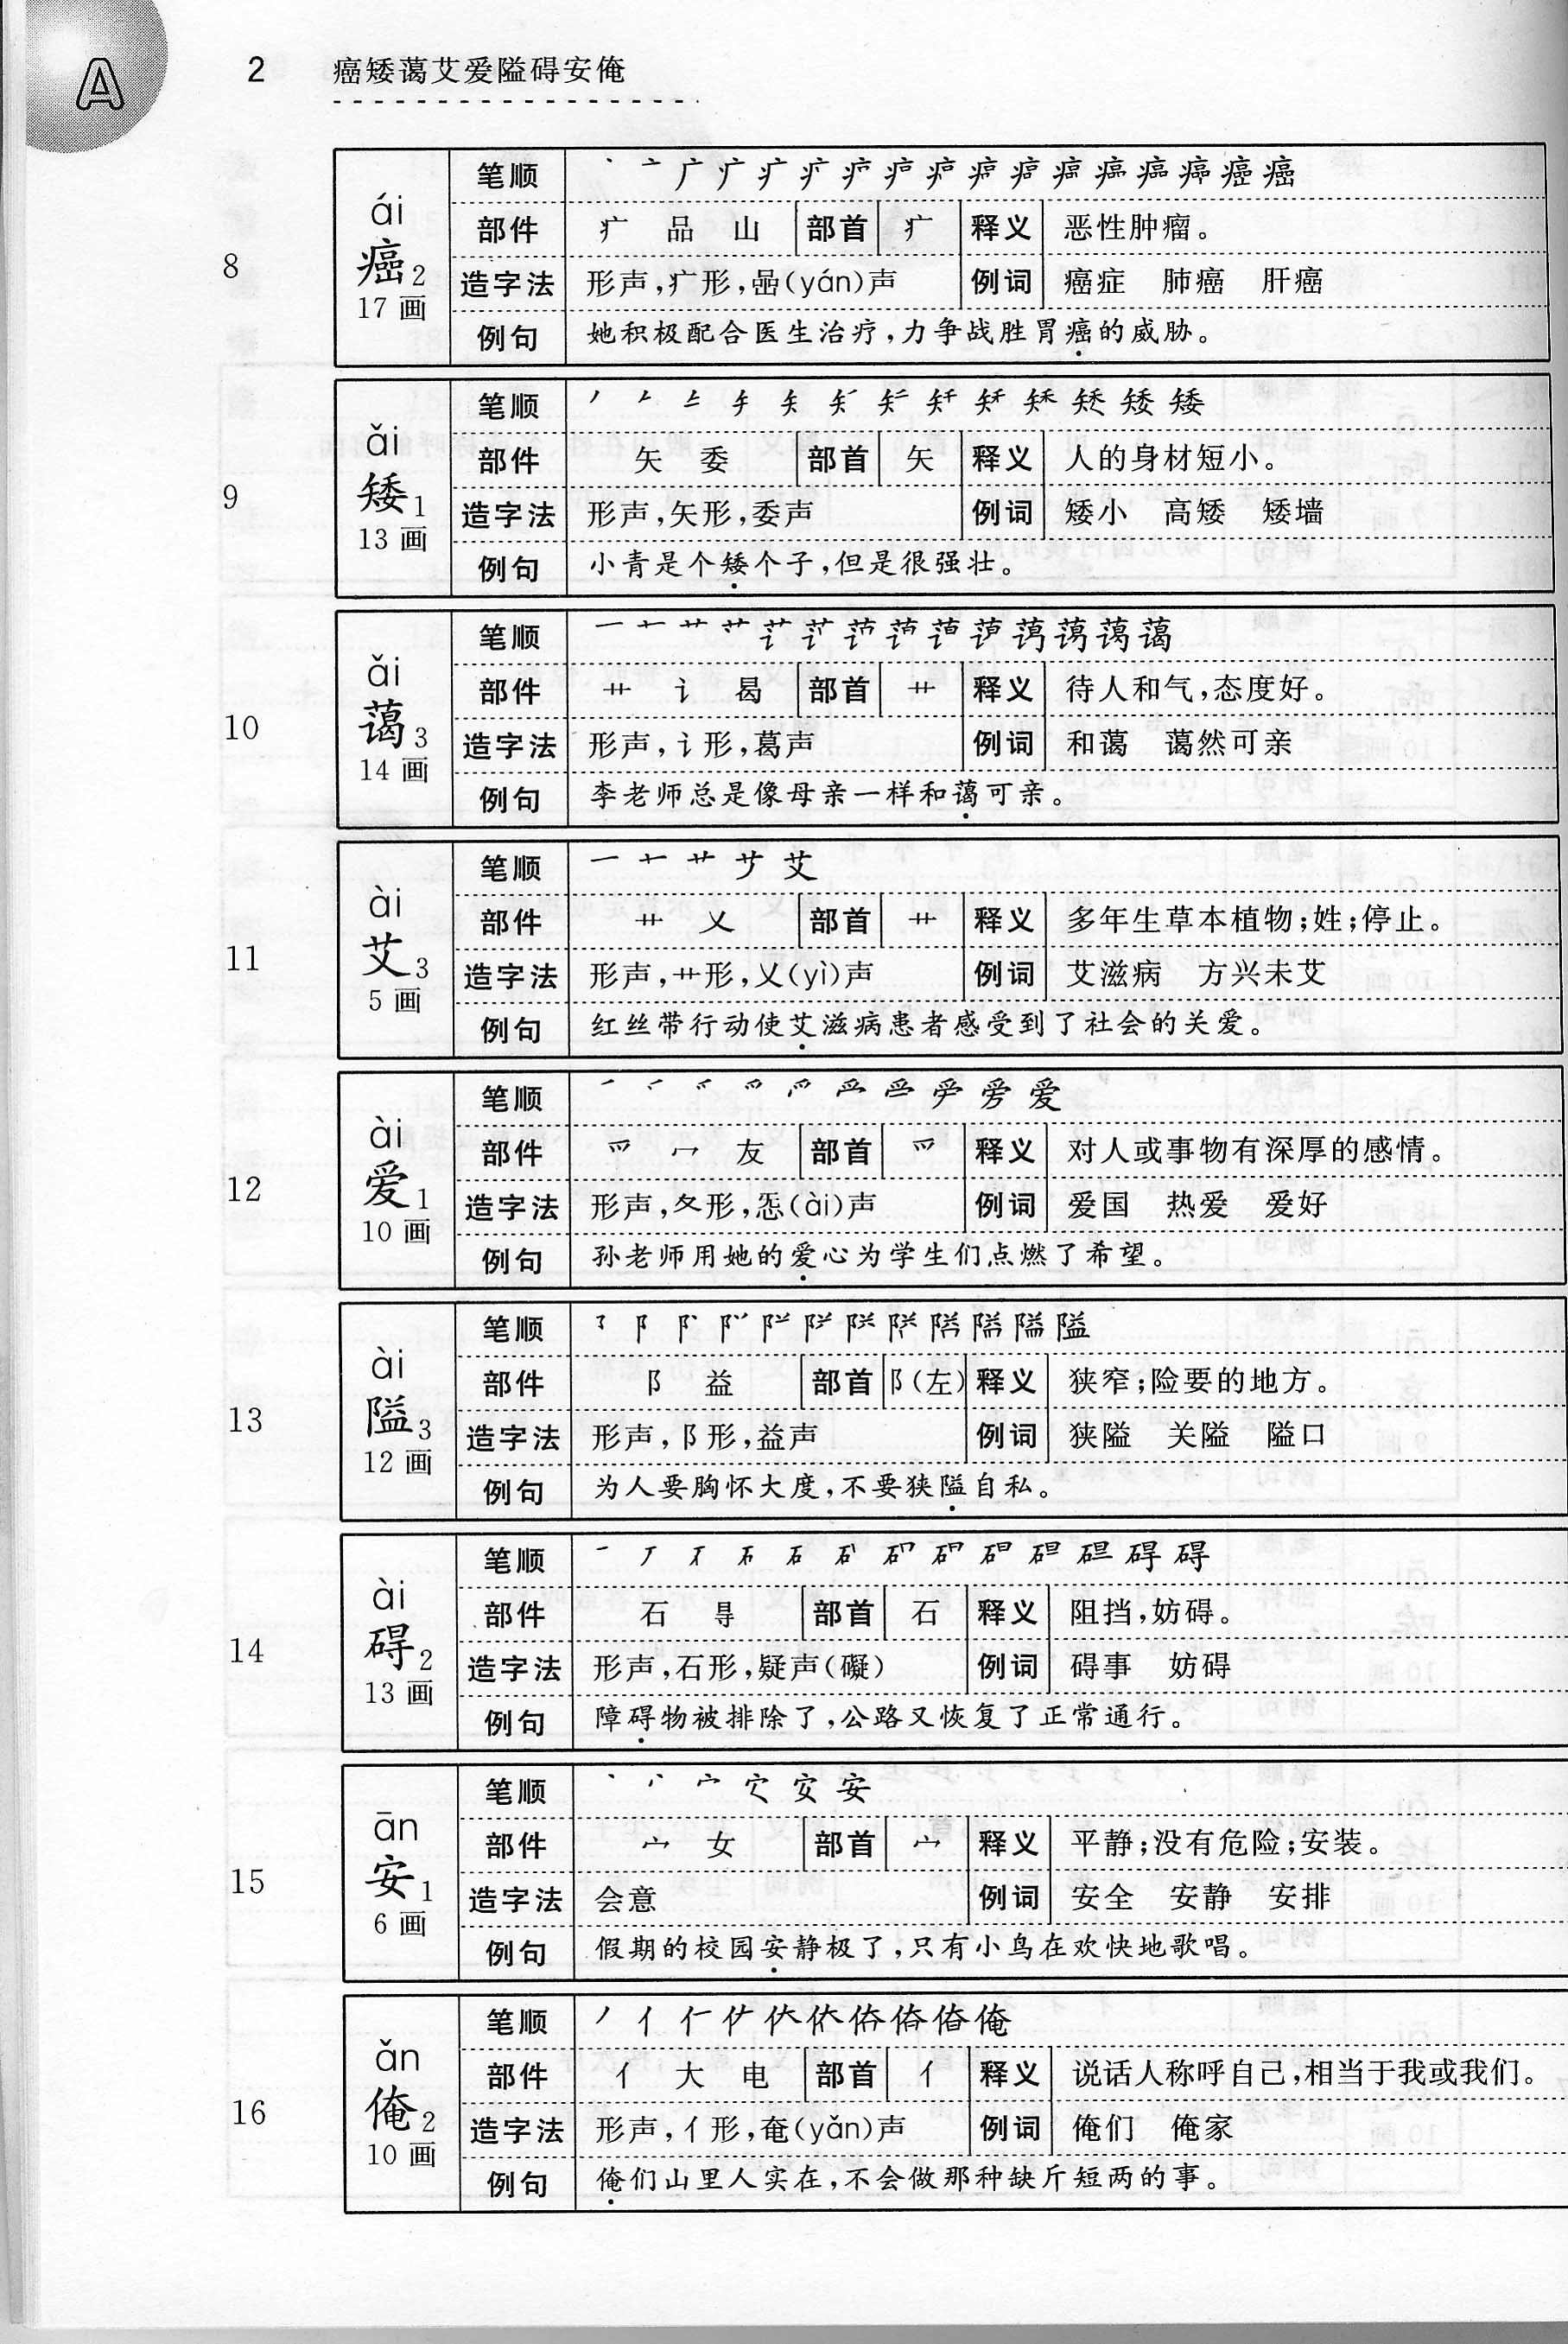 A
2 癌矮蔼艾爱隘碍安俺
8
ái
癌2
17画
笔顺
部件 疒 品 山 部首 疒 释义 恶性肿瘤。
造字法 形声,疒形,嵒(yán)声 例词 癌症 肺癌 肝癌
例句 她积极配合医生治疗,力争战胜胃癌的威胁。
9
ǎi
矮1
13画
笔顺
部件 矢 委 部首 矢 释义 人的身材短小。
造字法 形声,矢形,委声 例词 矮小 高矮 矮墙
例句 小青是个矮个子,但是很强壮。
10
ǎi
蔼3
14画
笔顺
部件 艹 讠 曷 部首 艹 释义 待人和气,态度好。
造字法 形声,讠形,葛声 例词 和蔼 蔼然可亲
例句 李老师总是像母亲一样和蔼可亲。
11
ài
艾3
5画
笔顺 一 艹 艾
部件 艹 乂 部首 艹 释义 多年生草本植物;姓;停止。
造字法 形声,艹形,乂(yì)声 例词 艾滋病 方兴未艾
例句 红丝带行动使艾滋病患者感受到了社会的关爱。
12
ài
爱1
10画
笔顺
部件 爫 冖 友 部首 爫 释义 对人或事物有深厚的感情。
造字法 形声,夂形,㤅(ài)声 例词 爱国 热爱 爱好
例句 孙老师用她的爱心为学生们点燃了希望。
13
ài
隘3
12画
笔顺
部件 阝 益 部首 阝(左) 释义 狭窄;险要的地方。
造字法 形声,阝形,益声 例词 狭隘 关隘 隘口
例句 为人要胸怀大度,不要狭隘自私。
14
ài
碍2
13画
笔顺
部件 石 㝵 部首 石 释义 阻挡,妨碍。
造字法 形声,石形,疑声(礙) 例词 碍事 妨碍
例句 障碍物被排除了,公路又恢复了正常通行。
15
ān
安1
6画
笔顺
部件 宀 女 部首 宀 释义 平静;没有危险;安装。
造字法 会意 例词 安全 安静 安排
例句 假期的校园安静极了,只有小鸟在欢快地歌唱。
16
ǎn
俺2
10画
笔顺
部件 亻 大 电 部首 亻 释义 说话人称呼自己,相当于我或我们。
造字法 形声,亻形,奄(yǎn)声 例词 俺们 俺家
例句 俺们山里人实在,不会做那种缺斤短两的事。